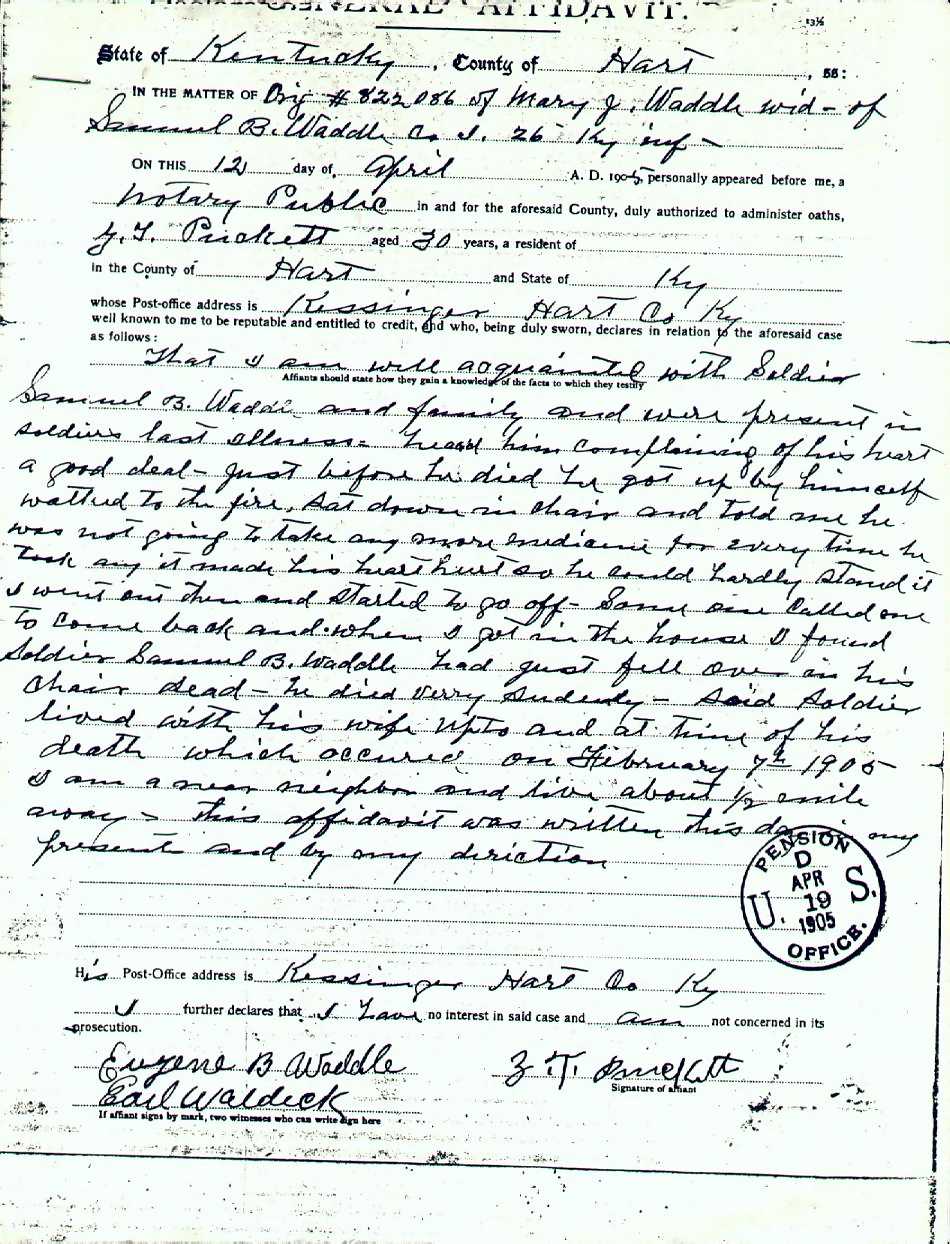 GENERAL AFFIDAVIT.
13½
State of Kentucky, County of Hart, ss:
IN THE MATTER OF Orig #822086 of Mary J. Waddle wid- of
Samuel B. Waddle Co I. 26 Ky inf-
ON THIS 12 day of April A. D. 1905, personally appeared before me, a
Notary Public in and for the aforesaid County, duly authorized to administer oaths,
Z. T. Puckett aged 30 years, a resident of
in the County of Hart and State of Ky
whose Post-office address is Kessinger Hart Co Ky
well known to me to be reputable and entitled to credit, and who, being duly sworn, declares in relation to the aforesaid case
as follows:
That I am well acquainted with Soldier
Affiants should state how they gain a knowledge of the facts to which they testify
Samuel B. Waddle and family and were present in
soldiers last illness- heard him complaining of his heart
a good deal- just before he died he got up by himself
walked to the fire, sat down in chair and told me he
was not going to take any more medicine for every time he
took any it made his heart hurt so he could hardly stand it
I went out then and started to go off- Some one called me
to come back and when I got in the house I found
Soldier Samuel B. Waddle had just fell over in his
chair dead- he died verry sudenly- said soldier
lived with his wife upto and at time of his
death which accured on February 7th 1905
I am a near neighbor and live about 1/2 mile
away- this affidavit was written this day in my
present and by my diriction
PENSION
D
APR
19
1905
U. S.
OFFICE.
His Post-Office address is Kessinger Hart Co Ky
I further declares that I have no interest in said case and am not concerned in its
prosecution.
Eugene B Waddle Z. T. Puckett
Signature of affiant
Earl Waldeck
If affiant signs by mark, two witnesses who can write sign here